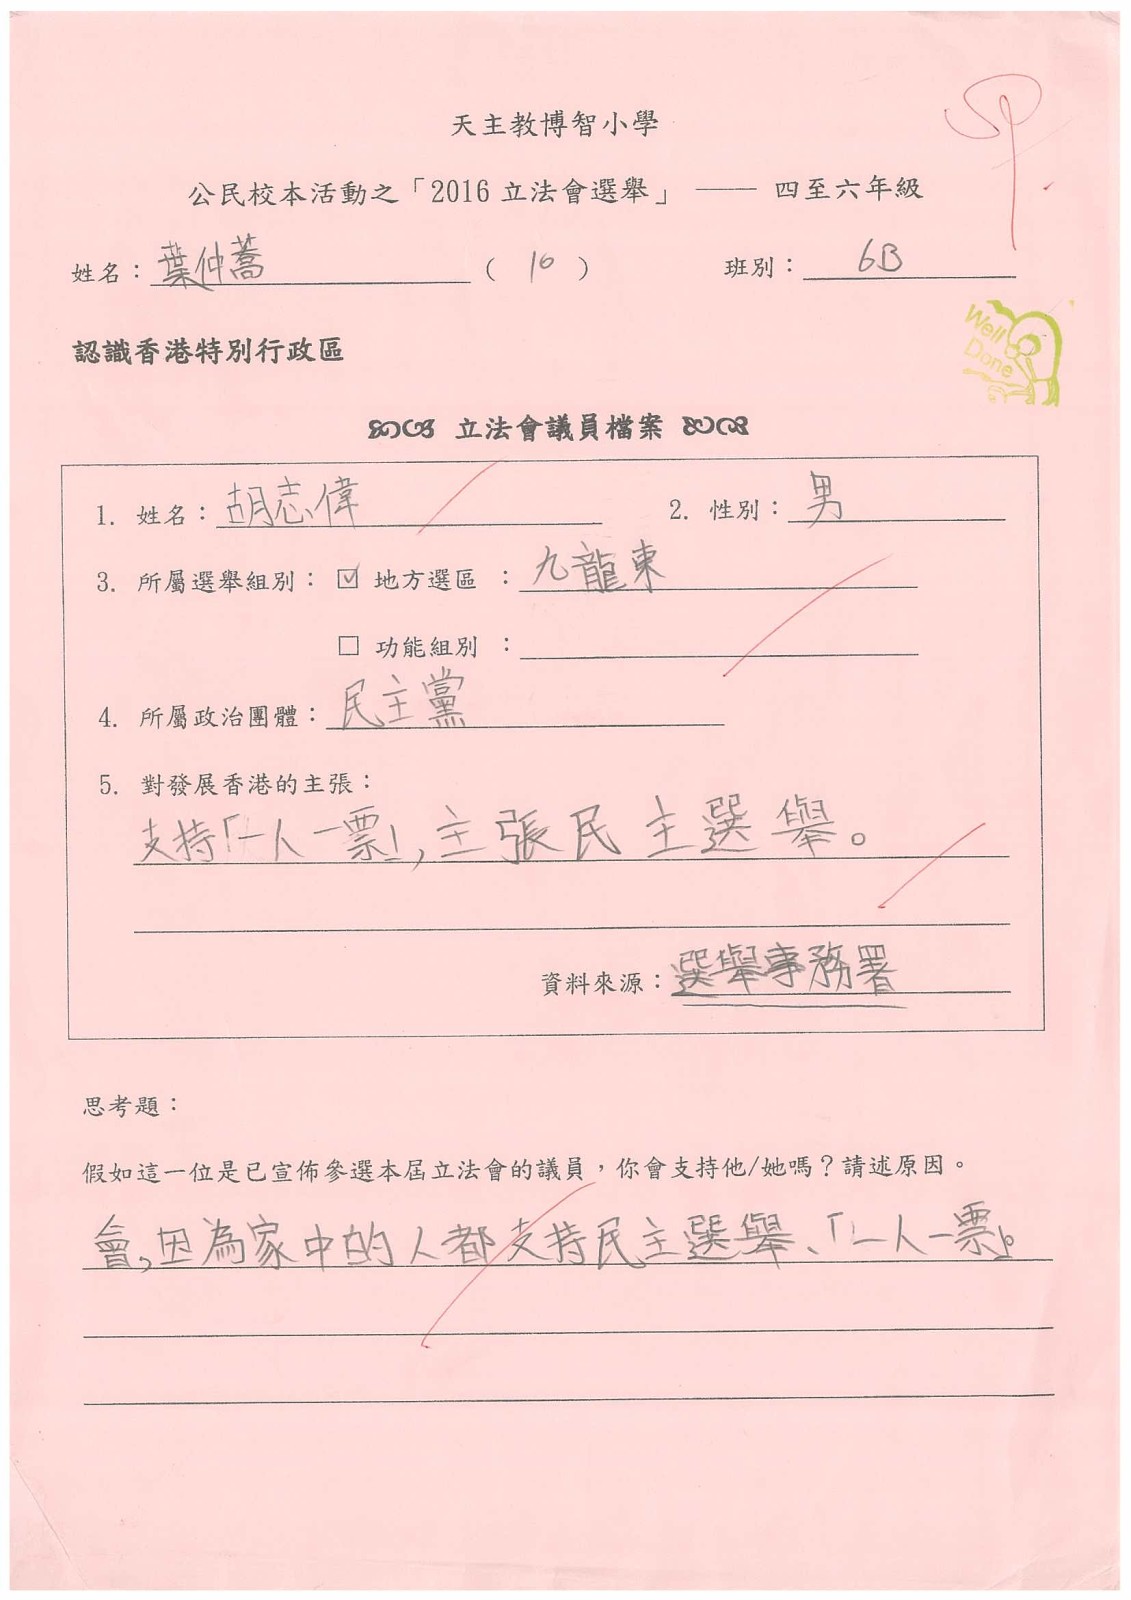 天主教博智小學
公民校本活動之「2016 立法會選舉」 —— 四至六年級
姓名：葉仲蕎 ( 10 ) 班別：6B
Well Done
認識香港特別行政區
立法會議員檔案
1. 姓名：胡志偉 2. 性別：男
3. 所屬選舉組別：☑ 地方選區 ：九龍東
□ 功能組別 ：
4. 所屬政治團體：民主黨
5. 對發展香港的主張：
支持「一人一票」，主張民主選舉。
資料來源：選舉事務署
思考題：
假如這一位是已宣佈參選本屆立法會的議員，你會支持他/她嗎？請述原因。
會，因為家中的人都支持民主選舉、「一人一票」。